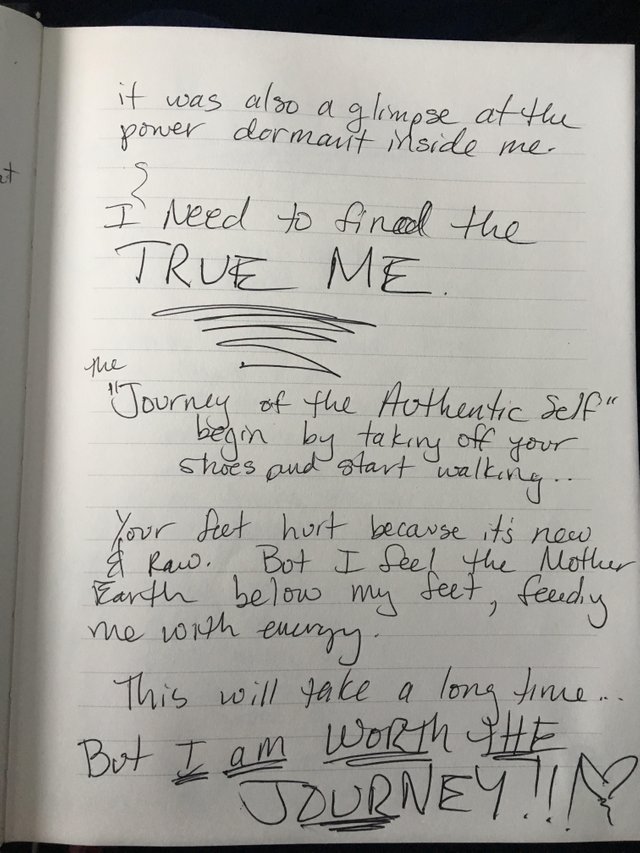 it was also a glimpse at the
power dormant inside me.
I Need to fined the
TRUE ME.
the
"Journey of the Authentic Self"
begin by taking off your
shoes and start walking..
Your feet hurt because it's new
& Raw. But I feel the Mother
Earth below my feet, feeding
me with energy.
This will take a long time...
But I am WORTH THE
JOURNEY!!!